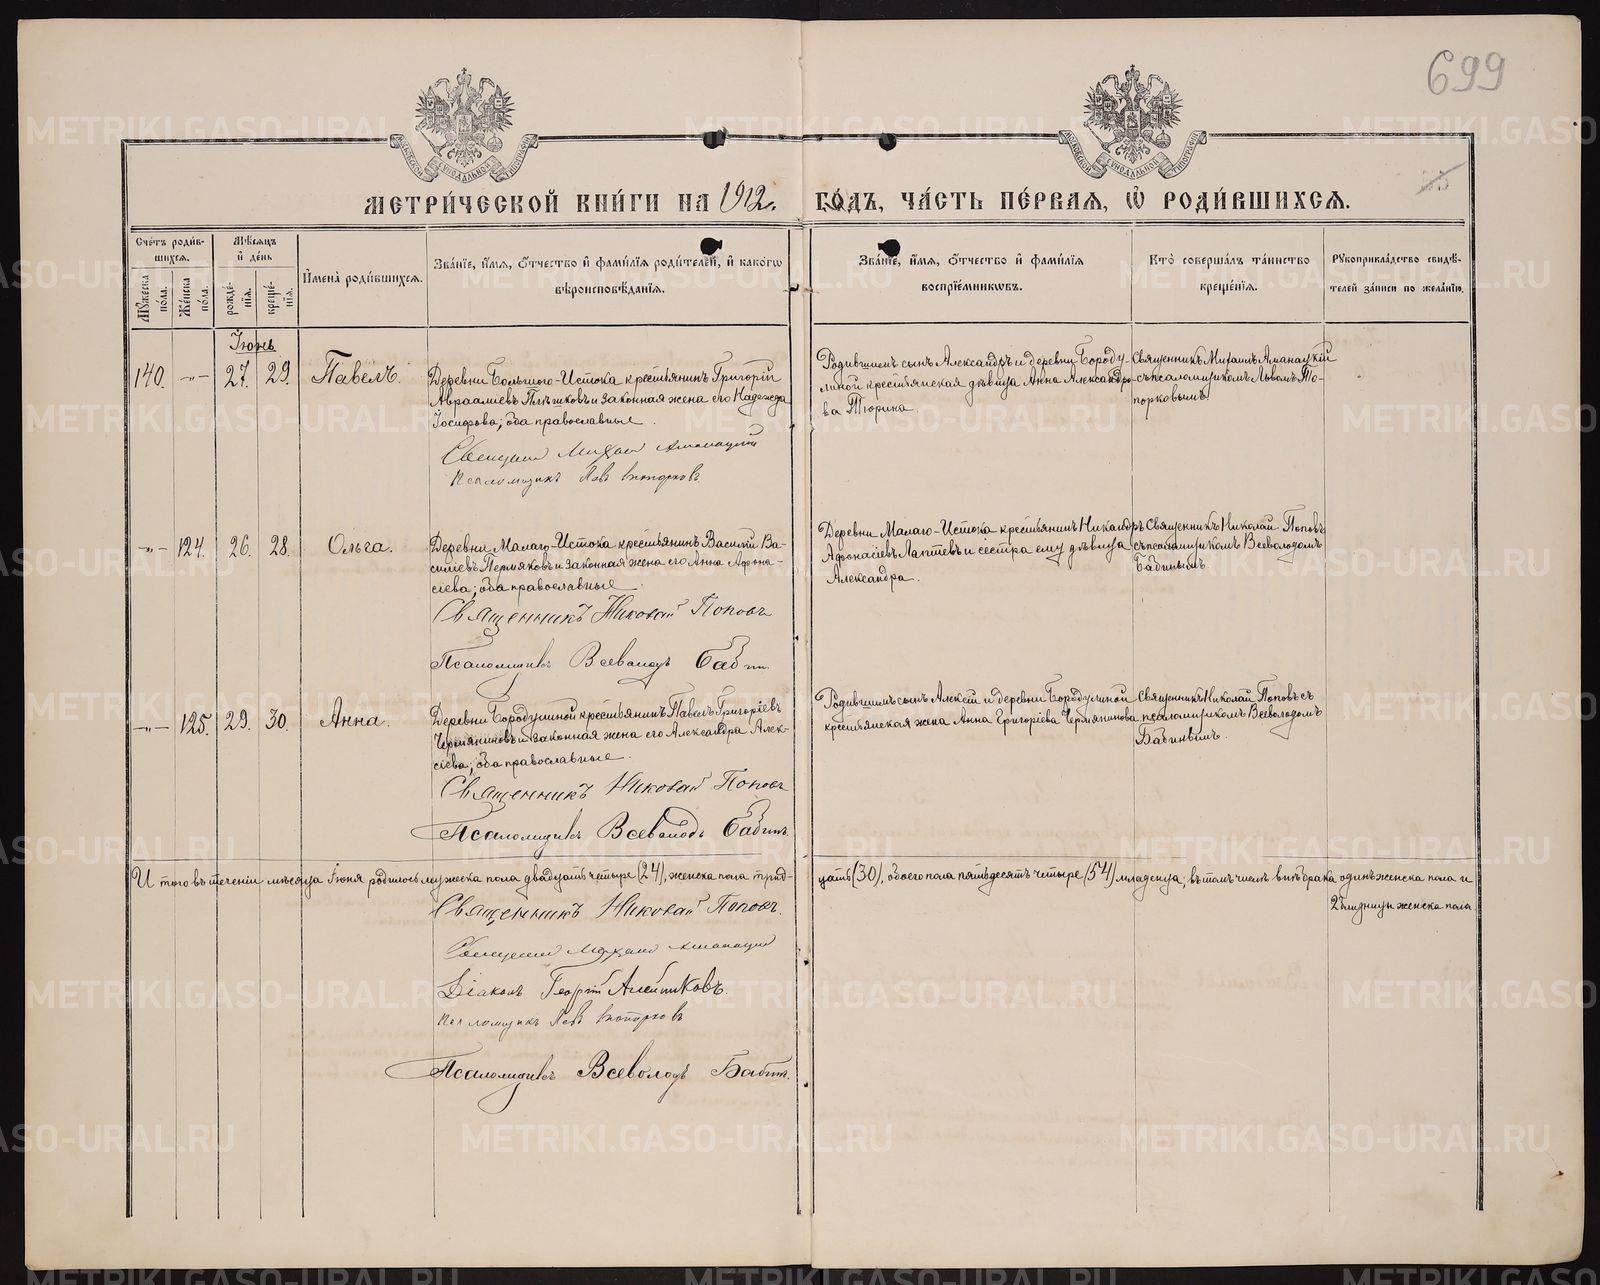 699
МОСКОВСКОЙ СѴНОДАЛЬНОЙ ТИПОГРАФІИ
МОСКОВСКОЙ СѴНОДАЛЬНОЙ ТИПОГРАФІИ
МЕТРИ́ЧЕСКОЙ КНИ́ГИ НА 1912 г. ГО́ДЪ, ЧА́СТЬ ПЕ́РВАѦ, Ѡ҆ РОДИ́ВШИХСѦ.
Сче́тъ роди́в-
шихсѧ.
Мꙋ́жеска по́ла.
Же́нска по́ла.
Мѣ́сѧцъ
и҆ де́нь
рожде́-
нїѧ.
креще́-
нїѧ.
И҆мена̀ роди́вшихсѧ.
Зва́нїе, и҆́мѧ, ѻ҆́тчество и҆ фами́лїѧ роди́телей, и҆ како́гѡ
вѣроисповѣ́данїѧ.
Зва́нїе, и҆́мѧ, ѻ҆́тчество и҆ фами́лїѧ
воспрїе́мникѡвъ.
Кто̀ соверша́лъ та́инство
креще́нїѧ.
Рꙋкоприкла́дство свидѣ́-
телей за́писи по жела́нїю.
Іюнь
140. -"- 27. 29. Павелъ.
Деревни Большого-Истока крестьянинъ Григорій
Авраамiевъ Плѣшковъ и законная жена его Надежда
Іосифова; оба православные.
Священникъ Михаил Аманацкій
Псаломщикъ Левъ Топорковъ
Родившимъ сынъ Александръ и деревни Бороду-
линой крестьянская дѣвица Анна Александро-
ва Тюрина.
Священникъ Михаилъ Аманацкій
съ псаломщикомъ Львомъ То-
порковымъ
-"- 124. 26. 28. Ольга.
Деревни Малаго-Истока крестьянинъ Василій Ва-
силіевъ Пермяковъ и законная жена его Анна Афона-
сіева; оба православные.
Священникъ Николай Поповъ
Псаломщикъ Всеволодъ Бабинъ
Деревни Малаго-Истока крестьянинъ Никандръ
Афонасіевъ Лаптевъ и сестра ему дѣвица
Александра.
Священникъ Николай Поповъ
съ псаломщикомъ Всеволодомъ
Бабинымъ
-"- 125. 29. 30. Анна.
Деревни Бородулиной крестьянинъ Павелъ Григоріевъ
Чермяниновъ и законная жена его Александра Алек-
сіева; оба православные.
Священникъ Николай Поповъ
Псаломщикъ Всеволодъ Бабинъ.
Родившимъ сынъ Алексѣй и деревни Бородулиной
крестьянская жена Анна Григоріева Чермянинова
Священникъ Николай Поповъ съ
псаломщикомъ Всеволодомъ
Бабинымъ.
Итого въ теченіи мѣсяца Іюня родилось мужеска пола двадцать четыре (24), женска пола трид-
цать (30), обоего пола пятьдесятъ четыре (54) младенца; въ томъ числѣ внѣ брака одинъ женска пола и
2 близницы женска пола
Священникъ Николай Поповъ.
Священникъ Михаил Аманацкій
Діаконъ Георгій
Псаломщикъ Левъ Топорковъ
Псаломщикъ Всеволодъ Бабинъ.
METRIKI.GASO-URAL.RU